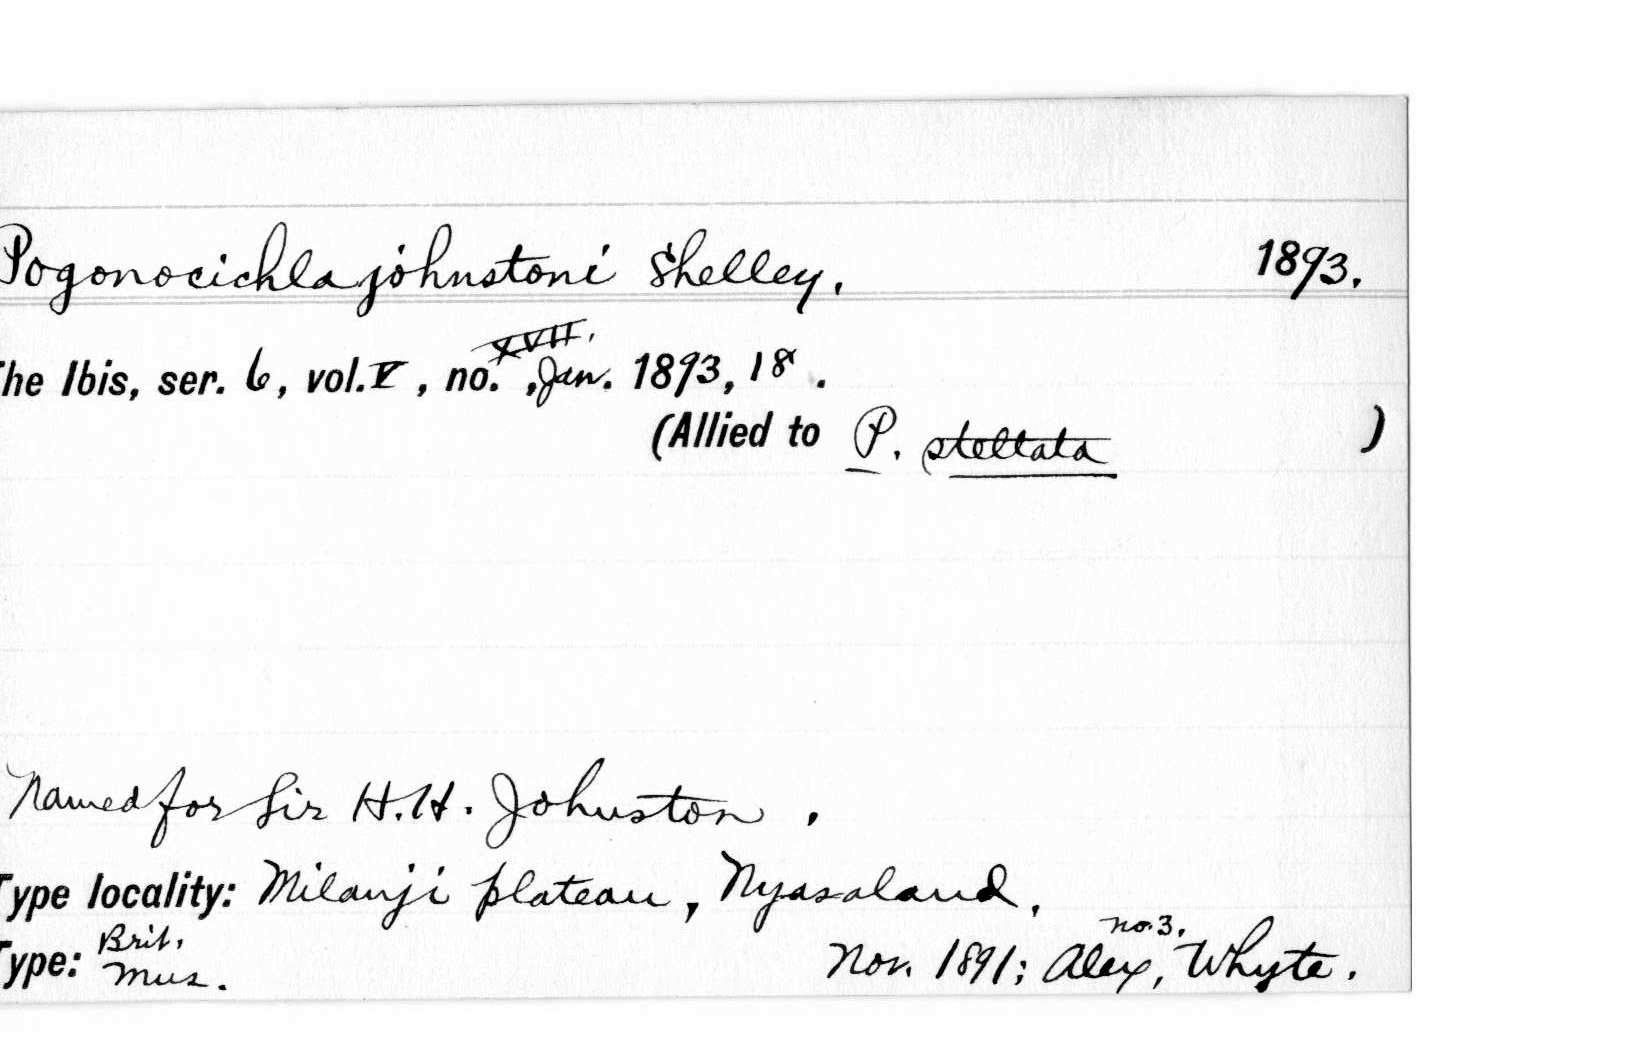 Pogonocichla johnstoni Shelley. 1893.
The Ibis, ser. 6, vol. V, no. XVII., Jan. 1893, 18.
(Allied to P. stellata )
Named for Sir H.H. Johnston.
Type locality: Milanji plateau, Nyasaland.
Type: Brit. Mus. Nov. 1891; no. 3. Alex, Whyte.